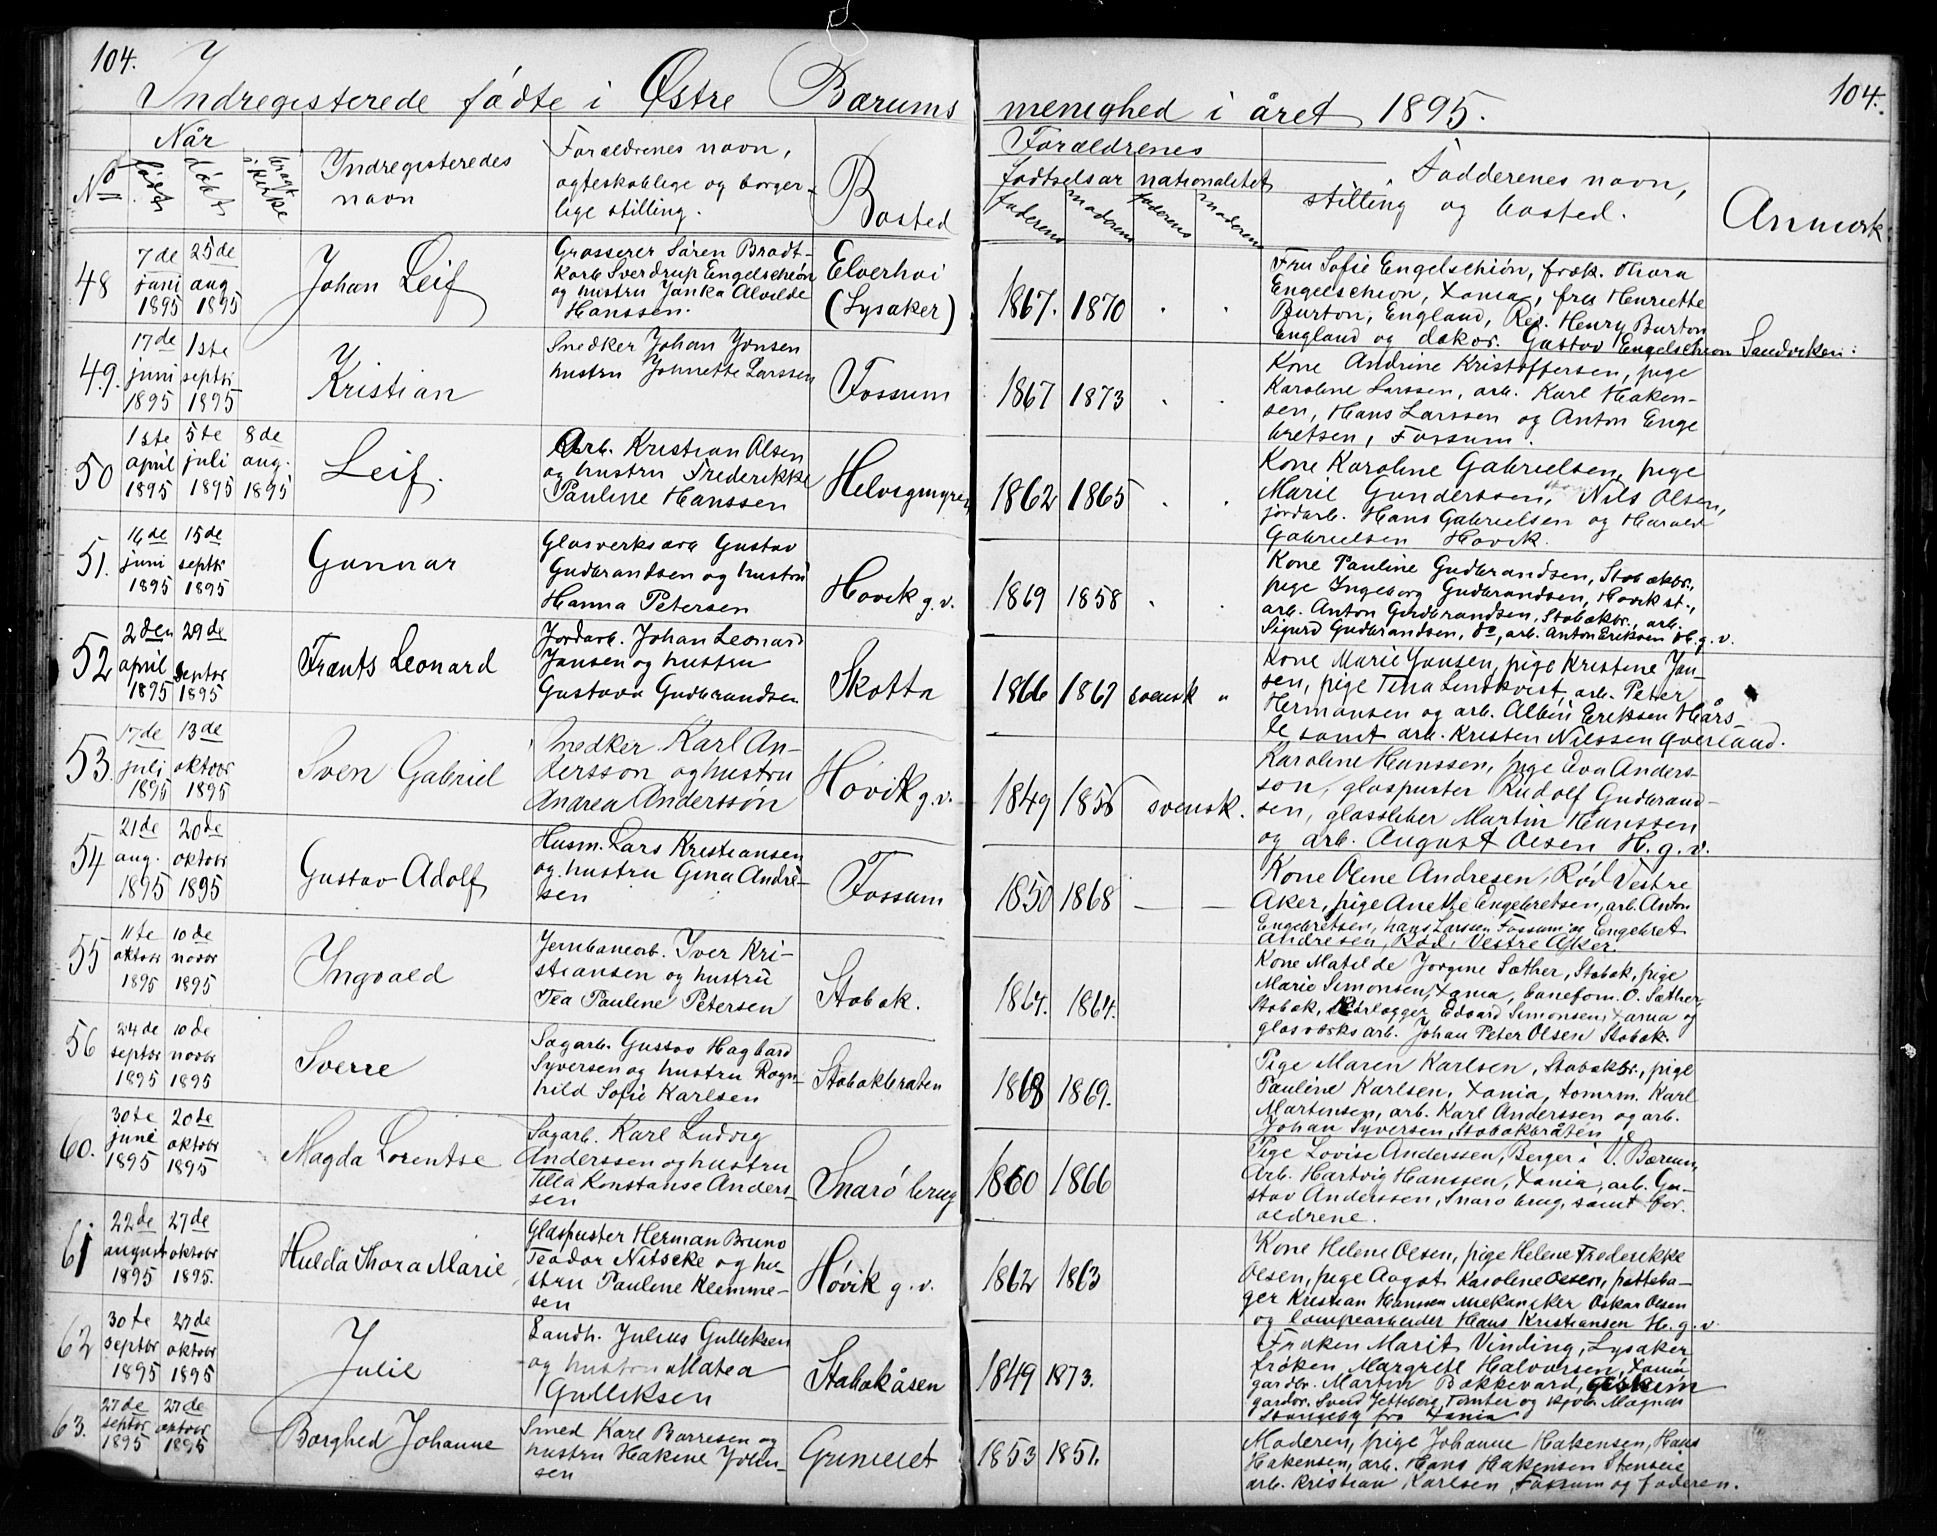 104.
Indregisterede födte i Østre Bærums
menighed i året 1895.
104.
Når
No
födt
döbt
bragt i kirke
Indregisteredes
navn
Forældrenes navn,
ægteskablige og borger-
lige stilling.
Bosted
Forældrenes
födselsår nationalitet
faderens moderens faderens moderens
Fadderenes navn,
stilling og bosted.
Anmerk
48
7de juni 1895
25de aug 1895
Johan Leif
Grosserer Sören Bradt-
Karb Sverdrup Engelschiön
og hustru Janka Alvilde
Hanssen.
Elverhöi
(Lysaker)
1867. 1870
Fru Sofie Engelschiön, frøk. Thora
Engelschiön, Xania, fru Henriette
Burton, England, Rev. Henry Burton
England og doktor. Gustav Engelschiøn Sandviken.
49.
17de juni 1895
1ste septbr 1895
Kristian
Snedker Johan Jonsen
hustru Johnette Larssen
Fossum
1867 1873
Kone Andrine Kristoffersen, pige
Karoline Larssen, arb. Karl Haken-
sen, Hans Larssen og Anton Enge
bretsen, Fossum.
50
1ste april 1895
5te juli 1895
8de aug. 1895
Leif.
Arb. Kristian Olsen
og hustru Frederikke
Pauline Hanssen
1862 1865
Kone Karoline Gabrielsen, pige
Marie Gunderssen, Nils Olsen,
jordarb. Hans Gabrielsen og Harald
Gabrielsen Hövik.
51.
16de juni 1895
15de septbr 1895
Gunnar
Glasverksarb Gustav
Gudbrandsen og hustru
Hanna Petersen
Hövik g.v.
1869 1858
Kone Pauline Gudbrandsen, Stabækbr.,
pige Ingeborg Gudbrandsen, Hövik st.,
arb. Anton Gudbrandsen, Stabækbr., arb.
Sigurd Gudbrandsen, do, arb. Anton Eriksen H.g.v.
52
2den april 1895
29de septbr 1895
Frants Leonard
Jordarb. Johan Leonard
Jansen og hustru
Gustava Gudbrandsen
Skotta
1866 1867 svensk "
Kone Marie Jansen, pige Kristine Jan-
sen, pige Tina Lindkvist, arb. Peter
Hermansen og arb. Albin Eriksen Hårs-
le samt arb. Kristen Nilssen Øverland.
53.
17de juli 1895
13de oktobr 1895
Sven Gabriel
Snedker Karl An-
dersson og hustru
Andrea Anderssön
Hövik g.v.
1849 1856 svensk.
Karoline Hanssen, pige Eva Anders-
son, glaspuster Rudolf Gudbrand-
sen, glassliber Martin Hanssen
og arb. August Olsen H.g.v.
54
21de aug. 1895
20de oktobr 1895
Gustav Adolf
Husm. Lars Kristiansen
og hustru Gina Andre-
sen
Fossum
1850 1868 — —
Kone Oline Andresen, Röd Vestre
Aker, pige Anette Engebretsen, arb. Anton
Engebretsen, Hans Larssen Fossum og Engebret
Andresen, Röd, Vestre Aker.
55
11te oktobr 1895
10de novbr 1895
Ingvald
Jernbanearb. Iver Kri-
stiansen og hustru
Tea Pauline Petersen
Stabæk.
1864. 1864.
Kone Matilde Jorgine Sæther, Stabæk, pige
Marie Simonsen, Xania, baneform. O. Sæther,
Stabæk, Edvard Simonsen, Xania og
glasværksarb. Johan Peter Olsen Stabæk.
56
24de septbr 1895
10de novbr 1895
Sverre
Sagarb. Gustav Hagbard
Syversen og hustru Ragn-
hild Sofie Karlsen
Stabækbråten
1868 1869.
Pige Maren Karlsen, Stabækbr., pige
Pauline Karlsen, Xania, tømrm. Karl
Martinsen, arb. Karl Anderssen og arb.
Johan Syversen, Stabækbråten
60.
30te juni 1895
20de oktobr 1895
Magda Lorentse
Sagarb. Karl Ludvig
Anderssen og hustru
Tilla Konstanse Anders-
sen
Snarö brug
1860 1866
Pige Lovise Anderssen, Berger i V. Bærum
Arb. Hartvig Hanssen, Xania, arb. Gu-
stav Anderssen, Snarö brug, samt for.
ældrene.
61
22de august 1895
27de oktobr 1895.
Hulda Thora Marie
Glaspuster Herman Bruno
Teodor Nitscke og hu-
stru Pauline Klemme-
sen
Høvik g.v.
1862 1863
Kone Helene Olsen, pige Helene Frederikke
Olsen, pige Aagot Karoline Olsen, pottebа-
ger Kristian Hanssen Mekaniker Oskar Olsen
og lampearbeider Hans Kristiansen H.g.v.
62
30te septbr 1895
27de oktobr 1895
Julie
Landh. Julius Gulliksen
og hustru Matea
Gulliksen
Stabækåsen
1849 1873.
Fröken Marit Vinding, Lysaker
fröken Margrete Halvorsen, Xania
gardbr. Martin Bækkevard, Askim
gardbr. Svend Jetteberg, Tomter og kjöb. Magnus
Stangeby fra Xania
63.
27de septbr 1895
27de oktobr 1895
Borghild Johanne
Smed Karl Borresen og
hustru Hakine John-
sen
Grinieiet
1853 1851.
Moderen, pige Johanne Hakensen, Hans
Hakensen, arb. Hans Hakensen Stenseie
arb. Kristian Karlsen, Fossum og faderen.